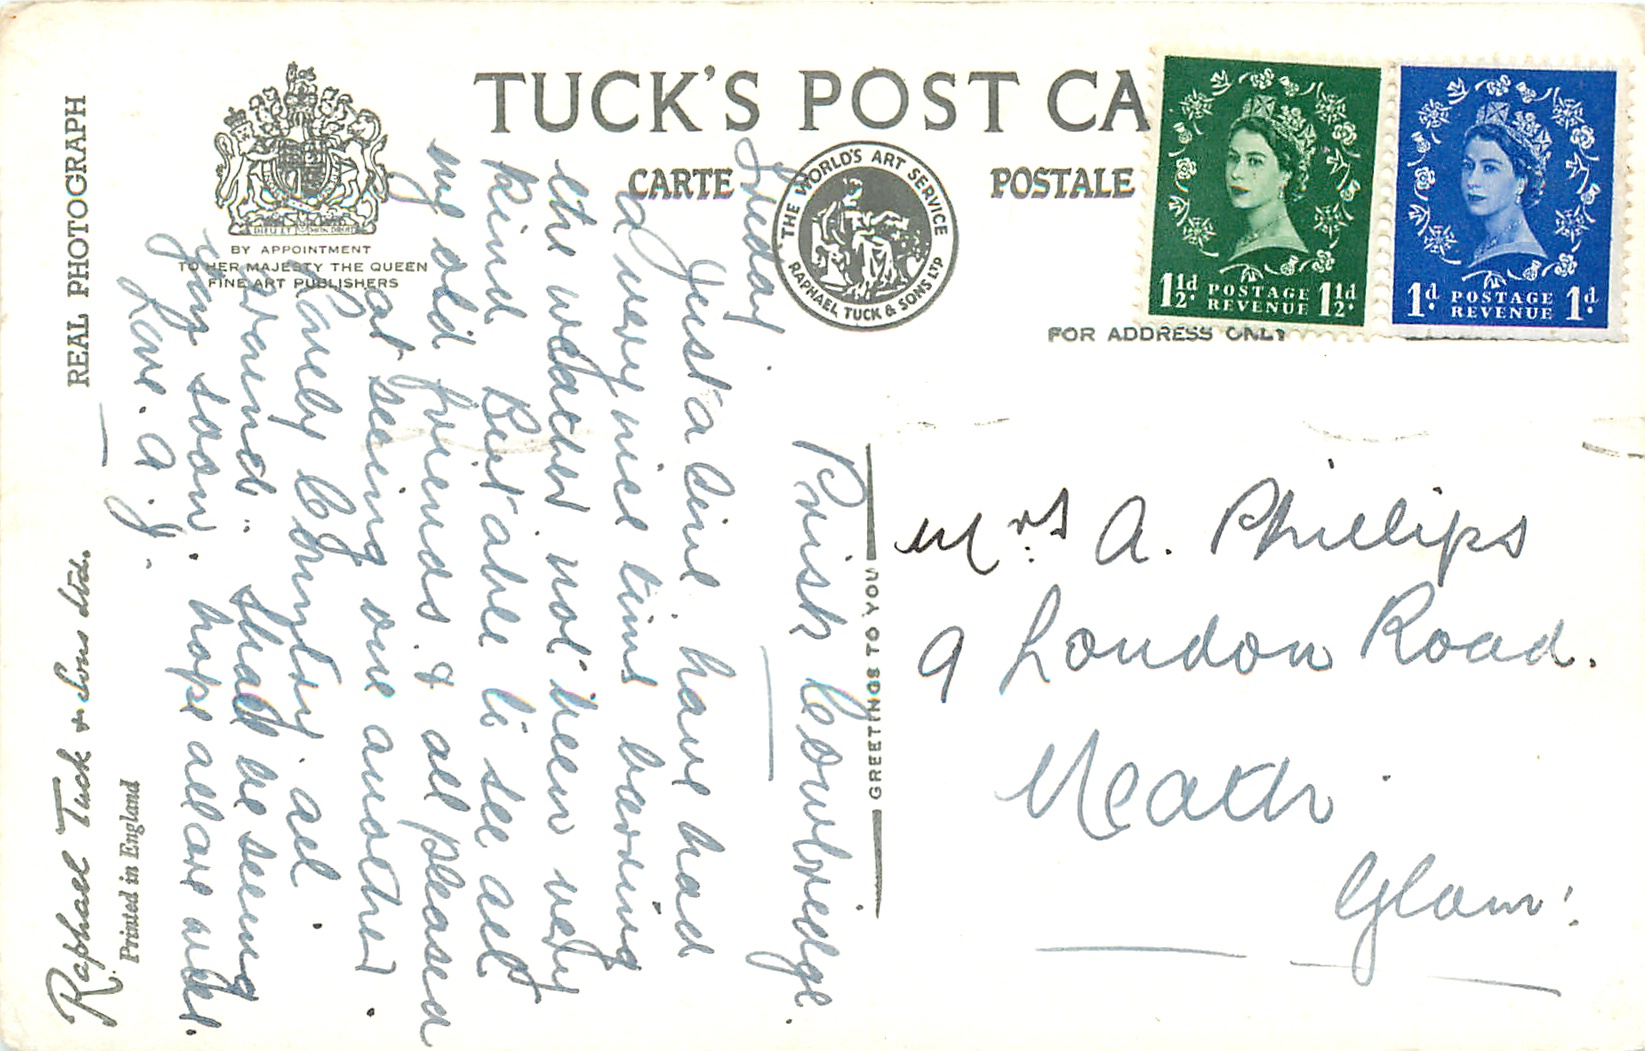 TUCK'S POST CA
CARTE POSTALE
THE WORLD'S ART SERVICE
RAPHAEL TUCK & SONS LTD
BY APPOINTMENT
TO HER MAJESTY THE QUEEN
FINE ART PUBLISHERS
REAL PHOTOGRAPH
Raphael Tuck & Sons Ltd.
Printed in England
GREETINGS TO YOU
FOR ADDRESS ONLY
1½d POSTAGE REVENUE 1½d
1d POSTAGE REVENUE 1d
Cowbridge.
Friday.
Just a line have had
a very nice time barring
the weather not been very
kind But able to see all
my old friends & all pleased
at seeing one another.
Lovely Country all
around. shall be seeing
you soon. hope all are well.
Love. A. J.
Mrs A. Phillips
9 London Road.
Neath
Glam: